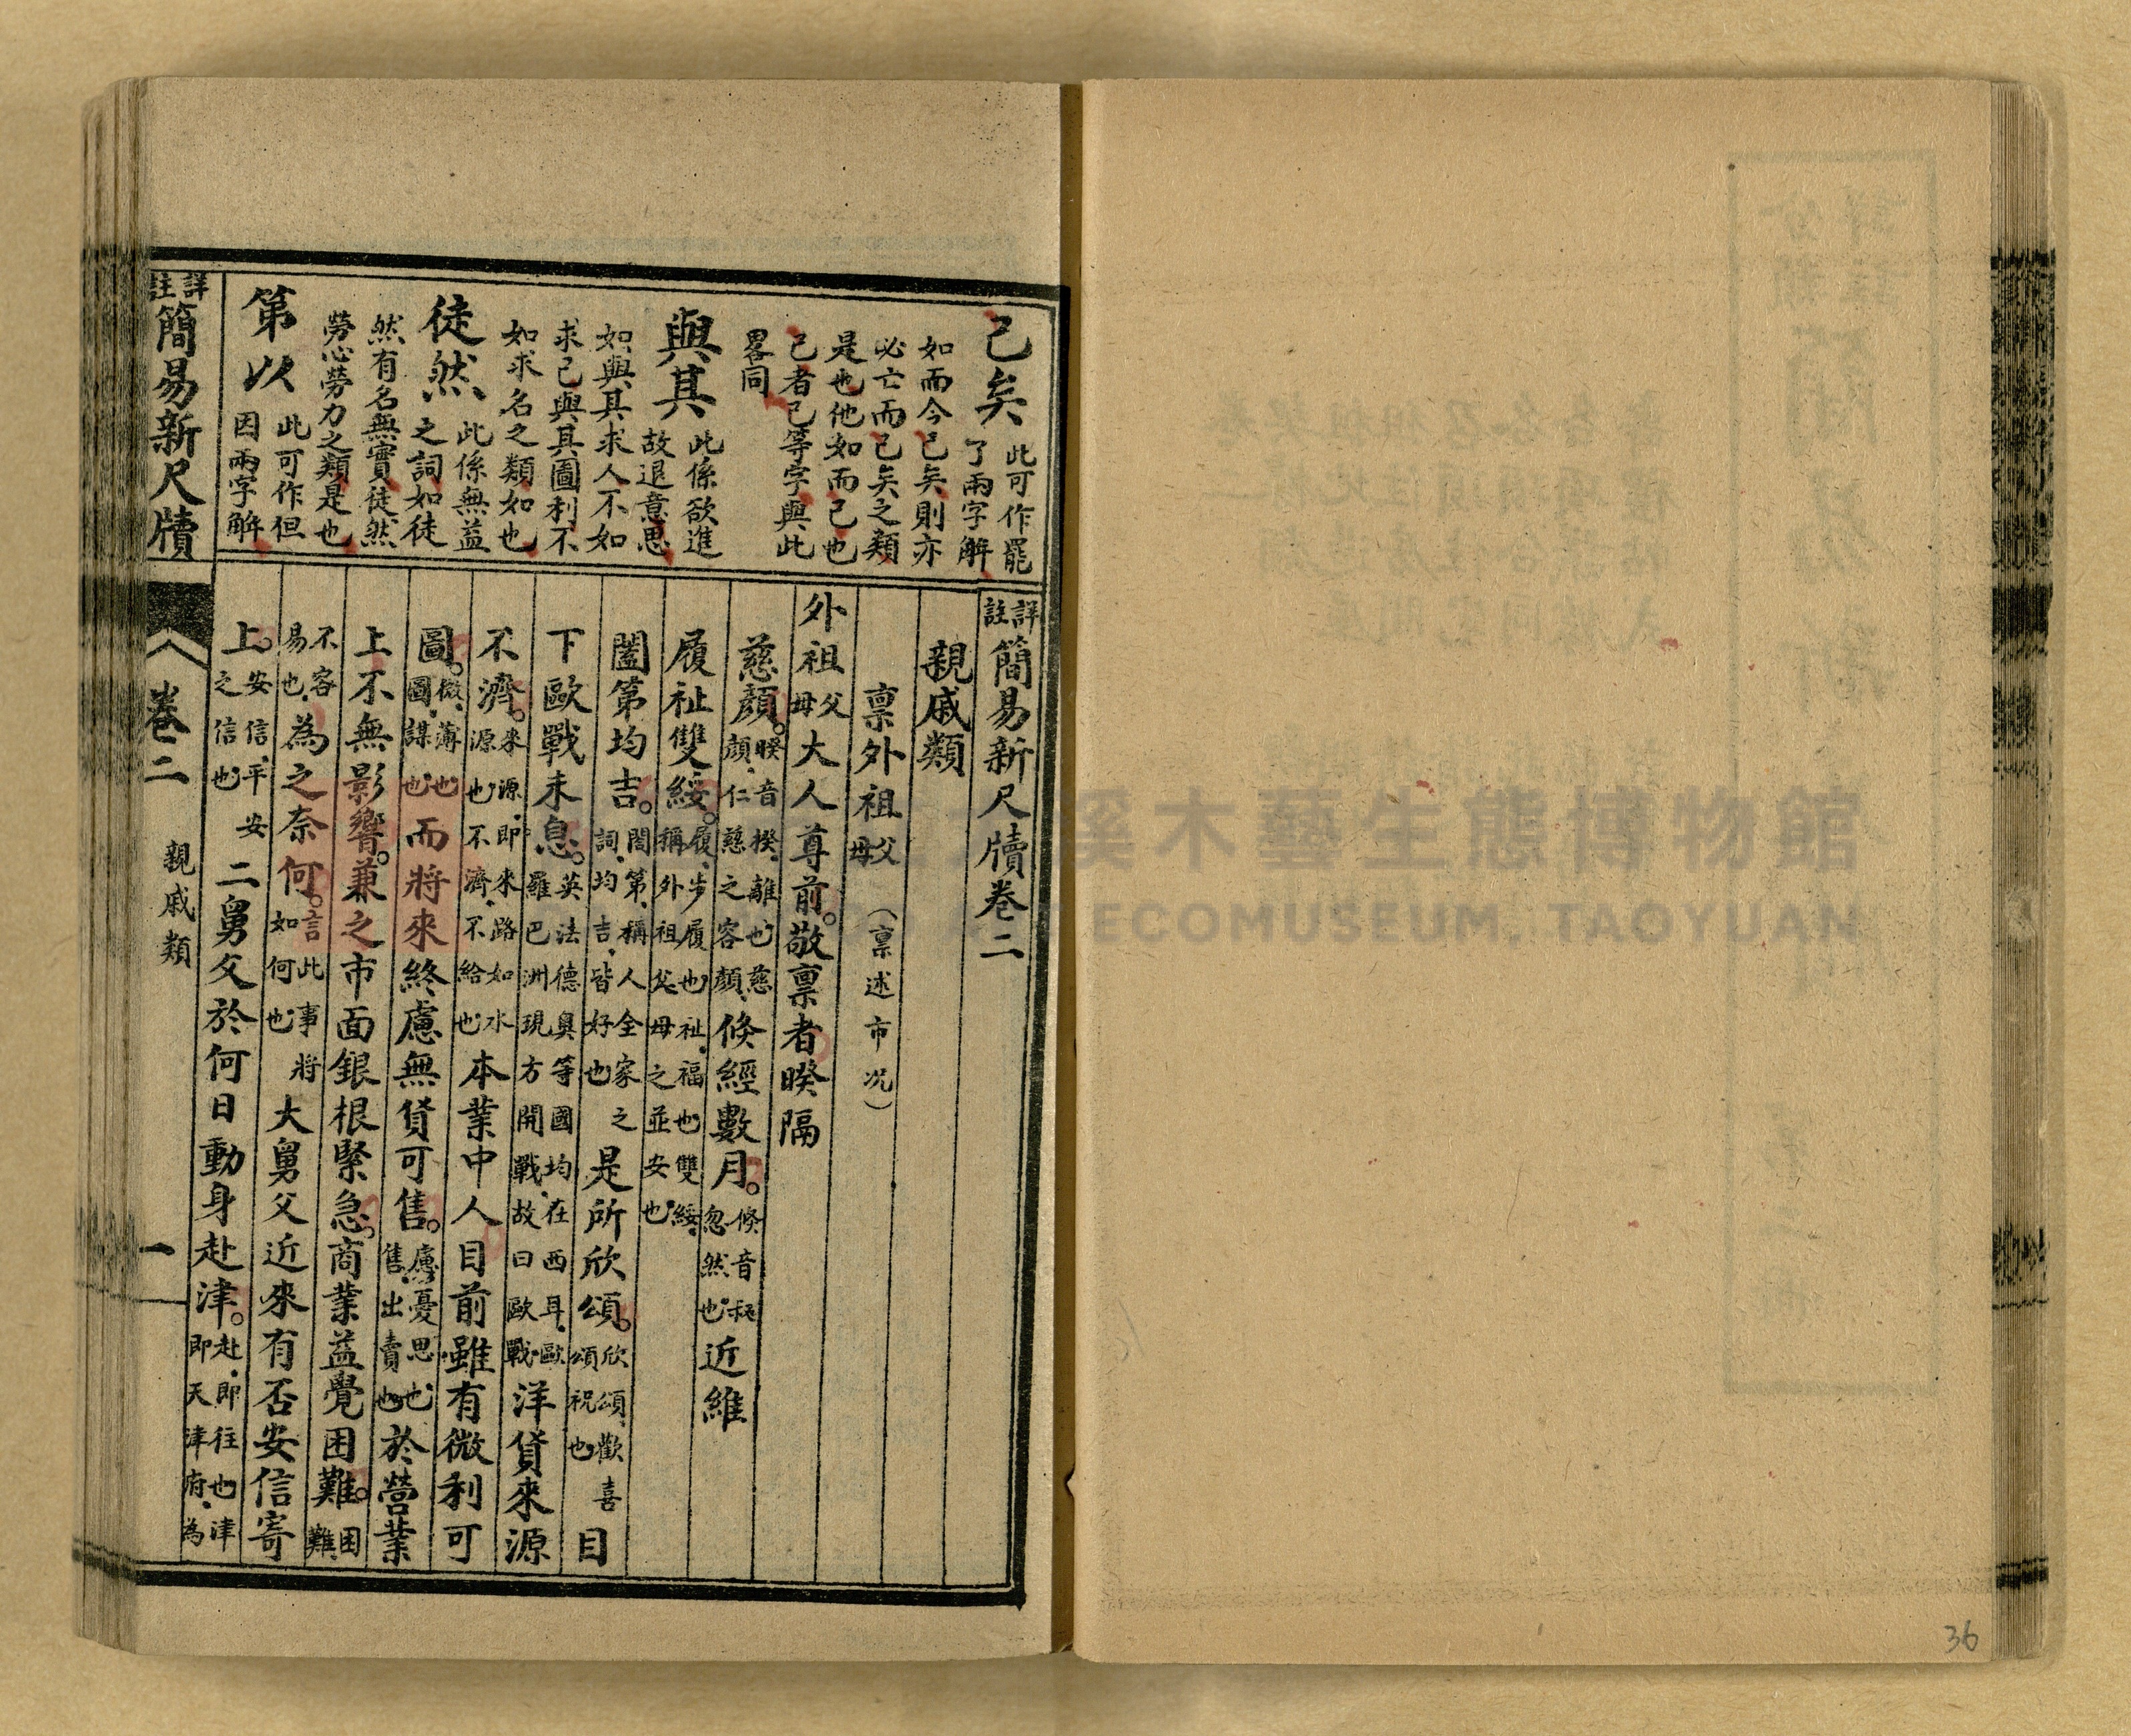 已矣 此可作罷
了兩字解
如而今已矣則亦
必亡而已矣之類
是也他如而已也
已者已等字與此
畧同
與其 此係欲進
故退意思
如與其求人不如
求己與其圖利不
如求名之類如也
徒然 此係無益
之詞如徒
然有名無實徒然
勞心勞力之類是也
第以 此可作但
因兩字解
詳註簡易新尺牘卷二
親戚類
禀外祖父母（禀述市况）
外祖父母大人尊前。敬禀者暌隔
慈顏。暌音揆、離也、慈顏、仁慈之容顏、倏經數月。倏音叔忽然也、近維
履祉雙綏。履、步履也、祉、福也、雙綏、稱外祖父母之並安也、
闔第均吉。閤第、稱人全家之詞、均吉、皆好也、是所欣頌。欣頌、歡喜頌祝也、目
下歐戰未息。英法德奧等國均在西耳、歐羅巴洲現方開戰、故曰歐戰、洋貨來源
不濟。來源、卽來路如水源也、不濟、不給也、本業中人目前雖有微利可
圖。微、薄也、圖、謀也、而將來終慮無貨可售。慮、憂思也、售、出賣也、於營業
上不無影響。兼之市面銀根緊急。商業益覺困難。困難、
不容易也、為之奈何。言此事將如何也、大舅父近來有否安信寄
上。安信、平安之信也、二舅父於何日動身赴津。赴、卽往也、津卽天津府、為
詳註簡易新尺牘
卷二
親戚類
一
溪木藝生態博物館
ECOMUSEUM, TAOYUAN
36